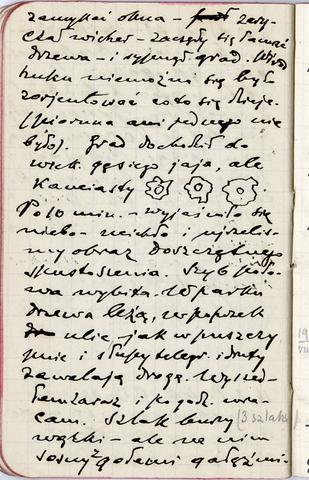 zamykać okna – zary-
czał wicher – zaczęły się łamać
drzewa – i sypnął grad. Wśród
huku niemożna się było
zorjentować co to się dzieje.
(pioruna ani jednego nie
było). Grad dochodził do
wielk. gęsiego jaja, ale
kanciasty
Po 10 min. – wyjaśniło się
niebo – ucichło i ujrzeliś-
my obraz doszczętnego
spustoszenia. Szyb poło-
wa wybita. W parku
drzewa leżą, wpoprzek
ulic, jak w puszczy
pnie i słupy telegr. i druty
zawalają drogę. Wysied-
łem zaraz i po godz. wra-
cam. Szlak burzy (3 szlaki)
wąski – ale na nim
sosny z gołemi gałęźmi –